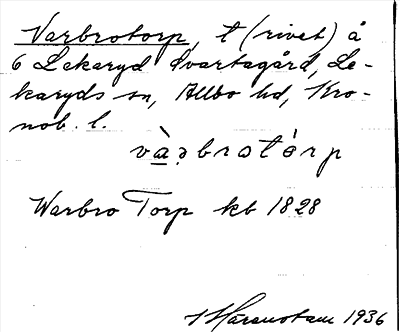 Varbrotorp, t (rivet) å
6 Lekaryd Svartagård, Le-
karyds sn, Allbo hd, Kro-
nob. l.
và̱ǝbrɔtórp
Warbro Torp kb 1828
1936